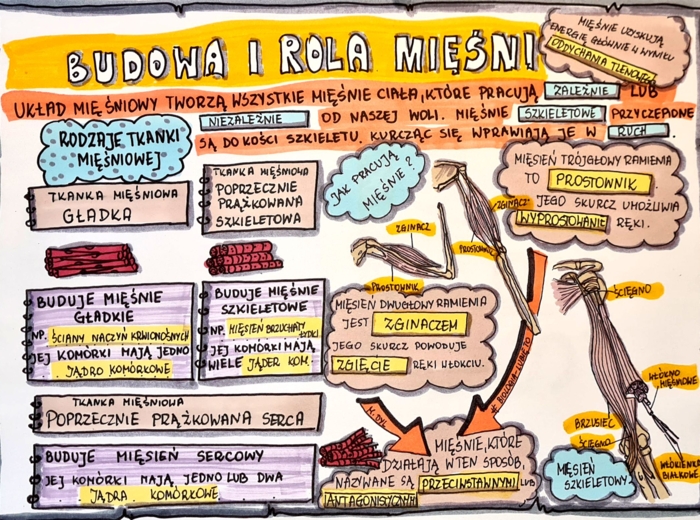 BUDOWA I ROLA MIĘŚNI
MIĘŚNIE UZYSKUJĄ
ENERGIĘ GŁÓWNIE W WYNIKU
ODDYCHANIA TLENOWEGO
UKŁAD MIĘŚNIOWY TWORZĄ WSZYSTKIE MIĘŚNIE CIAŁA, KTÓRE PRACUJĄ ZALEŻNIE LUB
NIEZALEŻNIE OD NASZEJ WOLI. MIĘŚNIE SZKIELETOWE PRZYCZEPIONE
SĄ DO KOŚCI SZKIELETU. KURCZĄC SIĘ WPRAWIAJĄ JE W RUCH.
RODZAJE TKANKI
MIĘŚNIOWEJ
TKANKA MIĘŚNIOWA
GŁADKA
TKANKA MIĘŚNIOWA
POPRZECZNIE
PRĄŻKOWANA
SZKIELETOWA
BUDUJE MIĘŚNIE
GŁADKIE
NP. ŚCIANY NACZYŃ KRWIONOŚNYCH
JEJ KOMÓRKI MAJĄ JEDNO
JĄDRO KOMÓRKOWE
BUDUJE MIĘŚNIE
SZKIELETOWE
NP. MIĘSIEŃ BRZUCHATY ŁYDKI
JEJ KOMÓRKI MAJĄ
WIELE JĄDER KOM.
TKANKA MIĘŚNIOWA
POPRZECZNIE PRĄŻKOWANA SERCA
BUDUJE MIĘSIEŃ SERCOWY
JEJ KOMÓRKI MAJĄ JEDNO LUB DWA
JĄDRA KOMÓRKOWE
JAK PRACUJĄ
MIĘŚNIE?
ZGINACZ
PROSTOWNIK
ZGINACZ
PROSTOWNIK
MIĘSIEŃ DWUGŁOWY RAMIENIA
JEST ZGINACZEM
JEGO SKURCZ POWODUJE
ZGIĘCIE RĘKI W ŁOKCIU.
MIĘSIEŃ TRÓJGŁOWY RAMIENIA
TO PROSTOWNIK
JEGO SKURCZ UMOŻLIWIA
WYPROSTOWANIE RĘKI.
MIĘŚNIE, KTÓRE
DZIAŁAJĄ W TEN SPOSÓB,
NAZYWANE SĄ PRZECIWSTAWNYMI LUB
ANTAGONISTYCZNYMI
ŚCIĘGNO
WŁÓKNO
MIĘŚNIOWE
BRZUSIEC
ŚCIĘGNO
WŁÓKIENKA
BIAŁKOWE
MIĘSIEŃ
SZKIELETOWY